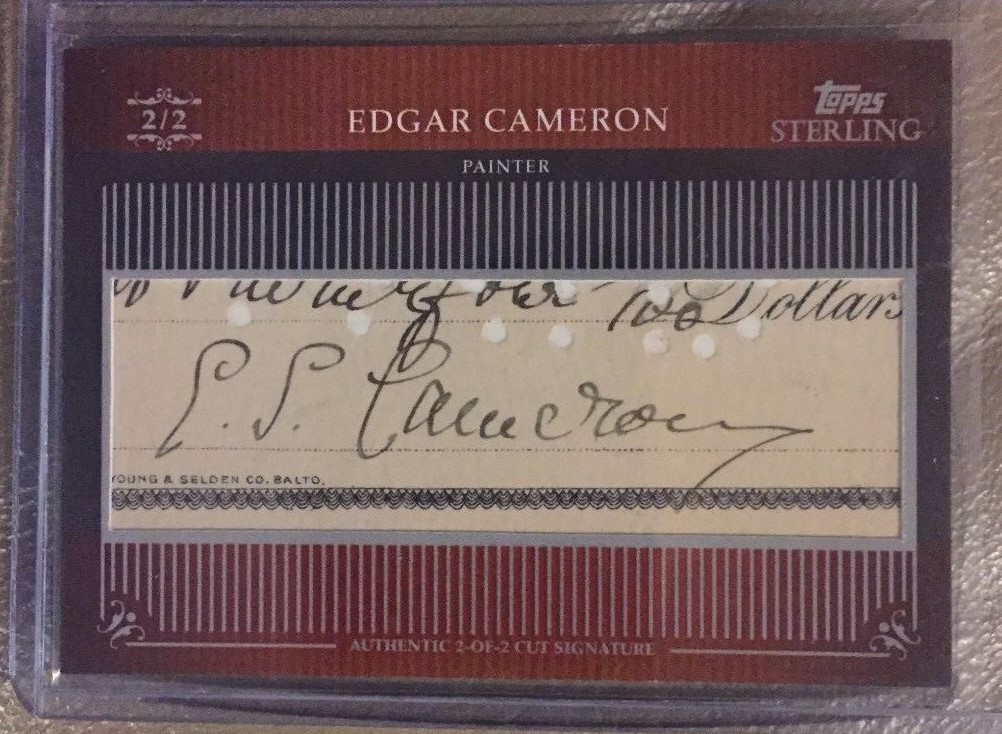 2/2
EDGAR CAMERON
TOPPS
STERLING
PAINTER
Dollars
E. S. Cameron
OUNG & SELDEN CO. BALTO.
AUTHENTIC 2-OF-2 CUT SIGNATURE